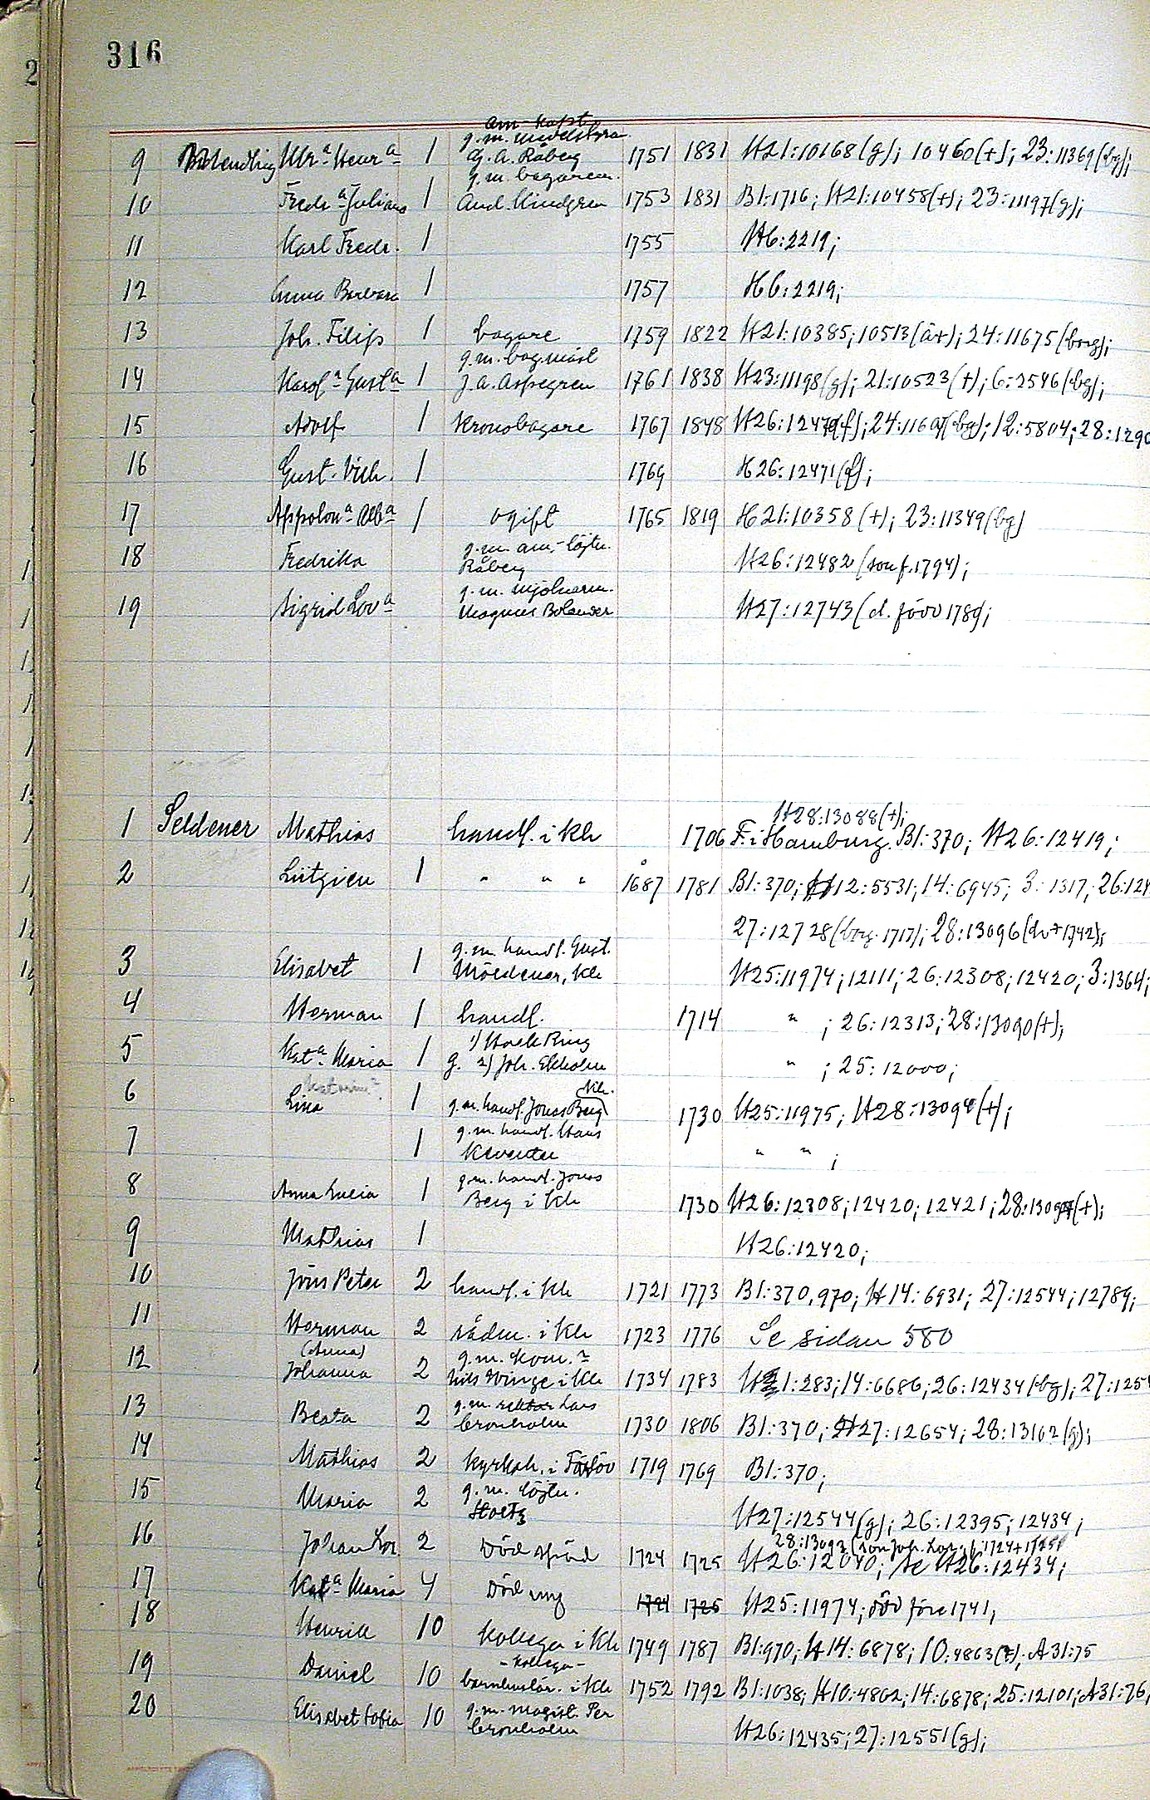 316
am. kapt.
9 Ulr.ª Henr.ª 1 A. Råberg 1751 1831 H21:10168(g); 10460(+); 23:11369(bg);
g.m. bagaren
10 Fredr.ª Juliana 1 And. Lindgren 1753 1831 Bl:1716; H21:10458(+); 23:11197(g);
11 Karl Fredr. 1 1755 H6:2219;
12 Anna Barbara 1 1757 H6:2219;
13 Joh. Filip 1 bagare 1759 1822 H21:10385; 10513(ä+); 24:11675(borg);
g.m. bag.mäst
14 Karol.ª Gust.ª 1 J.A. Aspegren 1761 1838 H23:11198(g); 21:10523(+); 6:2546(bg);
15 Adolf 1 Kronobagare 1767 1848 H26:12470(f); 24:11697(bg); 12:5804; 28:1290
16 Gust. Vilh. 1 1769 H26:12471(f);
17 Appolon.ª Alb.ª 1 ogift 1765 1819 H21:10358(+); 23:11349(bg)
g.m. am.-löjtn.
18 Fredrika Råberg H26:12482(son f. 1794);
g.m. mjölnaren
19 Sigrid Lov.ª Magnus Bolander H27:12743(d. före 1789;
H28:13088(+);
1 Seldener Mathias handl. i Kh 1706 F. i Hamburg. Bl:370; H26:12419;
2 Lütgien 1 " " " 1687 1781 Bl:370; H12:5531; 14:6945; 3:1317; 26:124
27:12728(borg. 1717); 28:13096(d+1742);
g.m. handl. Gust.
3 Elisabet 1 Möldener, Kh H25:11974; 12111; 26:12308; 12420; 3:1364;
4 Herman 1 handl. 1714 " ; 26:12313; 28:13090(+);
5 Kat.ª Maria 1 g. 2) Joh. Ekholm " ; 25:12000;
Katarina?
6 Lina 1 g.m. handl. Jonas Berg Kh. 1730 H25:11975; H28:13094(+);
g.m. handl. Hans
7 1 Klventer " " ;
g.m. handl. Jonas
8 Anna Lucia 1 Berg i Kh 1730 H26:12308; 12420; 12421; 28:13094(+);
9 Mathias 1 H26:12420;
10 Jöns Peter 2 handl. i Kh 1721 1773 Bl:370, 970; H14:6931; 27:12544; 12789;
11 Herman 2 rådm. i Kh 1723 1776 Se sidan 580
(Anna) g.m. kom.
12 Johanna 2 Nils Winge i Kh 1734 1783 H21:283; 14:6686; 26:12434(bg); 27:1254
g.m. rektor Lars
13 Beata 2 Cronholm 1730 1806 Bl:370; H27:12654; 28:13162(g);
14 Mathias 2 kyrkoh. i Förslöv 1719 1769 Bl:370;
g.m. löjtn.
15 Maria 2 Holtz H27:12544(g); 26:12395; 12434;
28:13092(son Joh. Lor. f. 1724+1725)
16 Johan Lor. 2 Död späd 1724 1725 H26:12040; Se H26:12434;
17 Kat.ª Maria 4 Död ung 1724 1725 H25:11974; död före 1741;
18 Henrik 10 kollega i Kh 1749 1787 Bl:970; H14:6878; 10:4863(+); A31:75
-kollega-
19 Daniel 10 barnhuslär. i Kh 1752 1792 Bl:1038; H10:4862; 14:6878; 25:12101; A31:76,
g.m. magist. Per
20 Elisabet Sofia 10 Cronholm H26:12435; 27:12551(g);